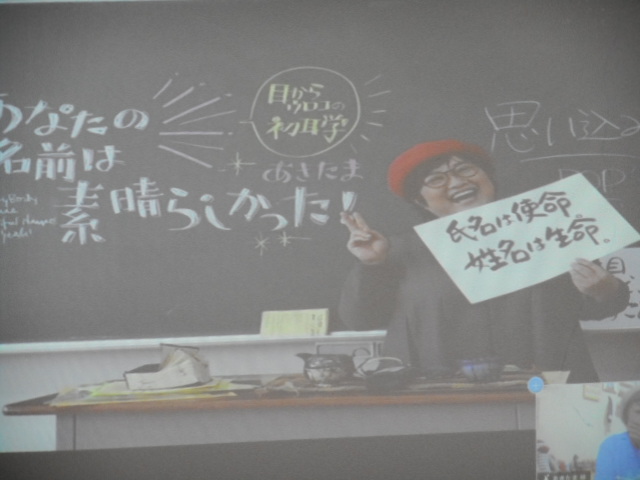 あなたの
名前は
素晴らしかった!
目から
ウロコの
初耳学
あきたま
思い込み
POP
氏名は使命
姓名は生命。